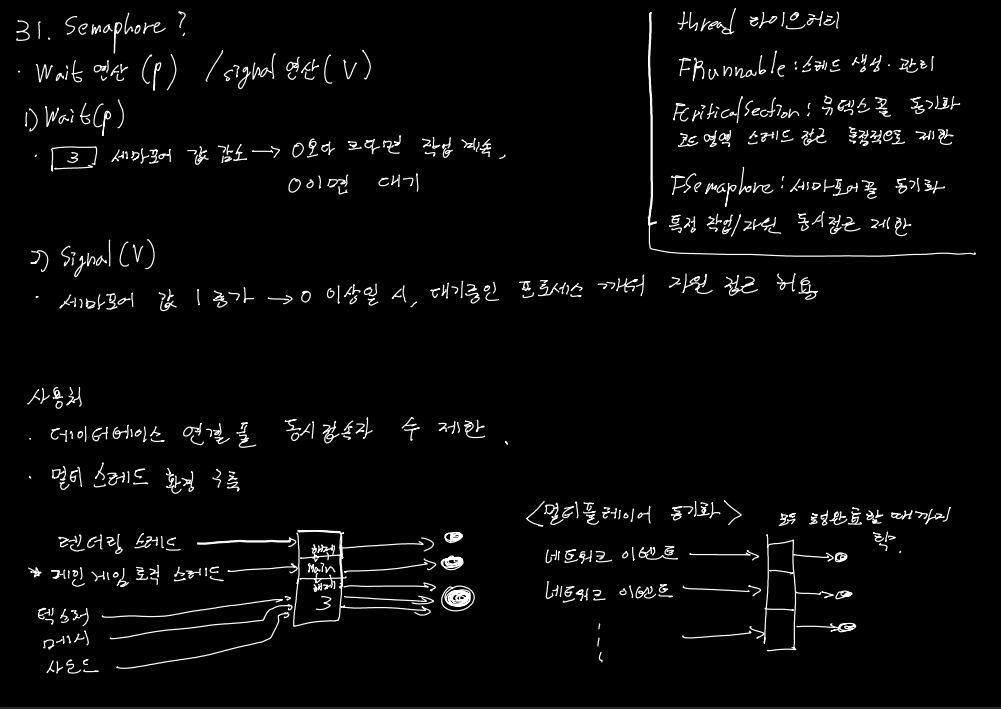 31. Semaphore?
· Wait 연산 (p) / signal 연산(V)
1) Wait(p)
· 3 세마포어 값 감소 → 0보다 크다면 작업 계속,
0이면 대기
2) Signal(V)
· 세마포어 값 1 증가 → 0 이상일 시, 대기중인 프로세스 깨워 자원 접근 허용
thread 라이브러리
FRunnable : 스레드 생성·관리
FCriticalSection : 뮤텍스로 동기화
코드 영역 스레드 접근 독점적으로 제한
FSemaphore : 세마포어로 동기화
특정 작업/자원 동시접근 제한
사용처
· 데이터베이스 연결 풀 동시접속자 수 제한.
· 멀티 스레드 환경 구축
렌더링 스레드
* 메인 게임 로직 스레드
텍스처
메시
사운드
main
해제
3
<멀티플레이어 동기화>
네트워크 이벤트
네트워크 이벤트
모두 완료할 때까지